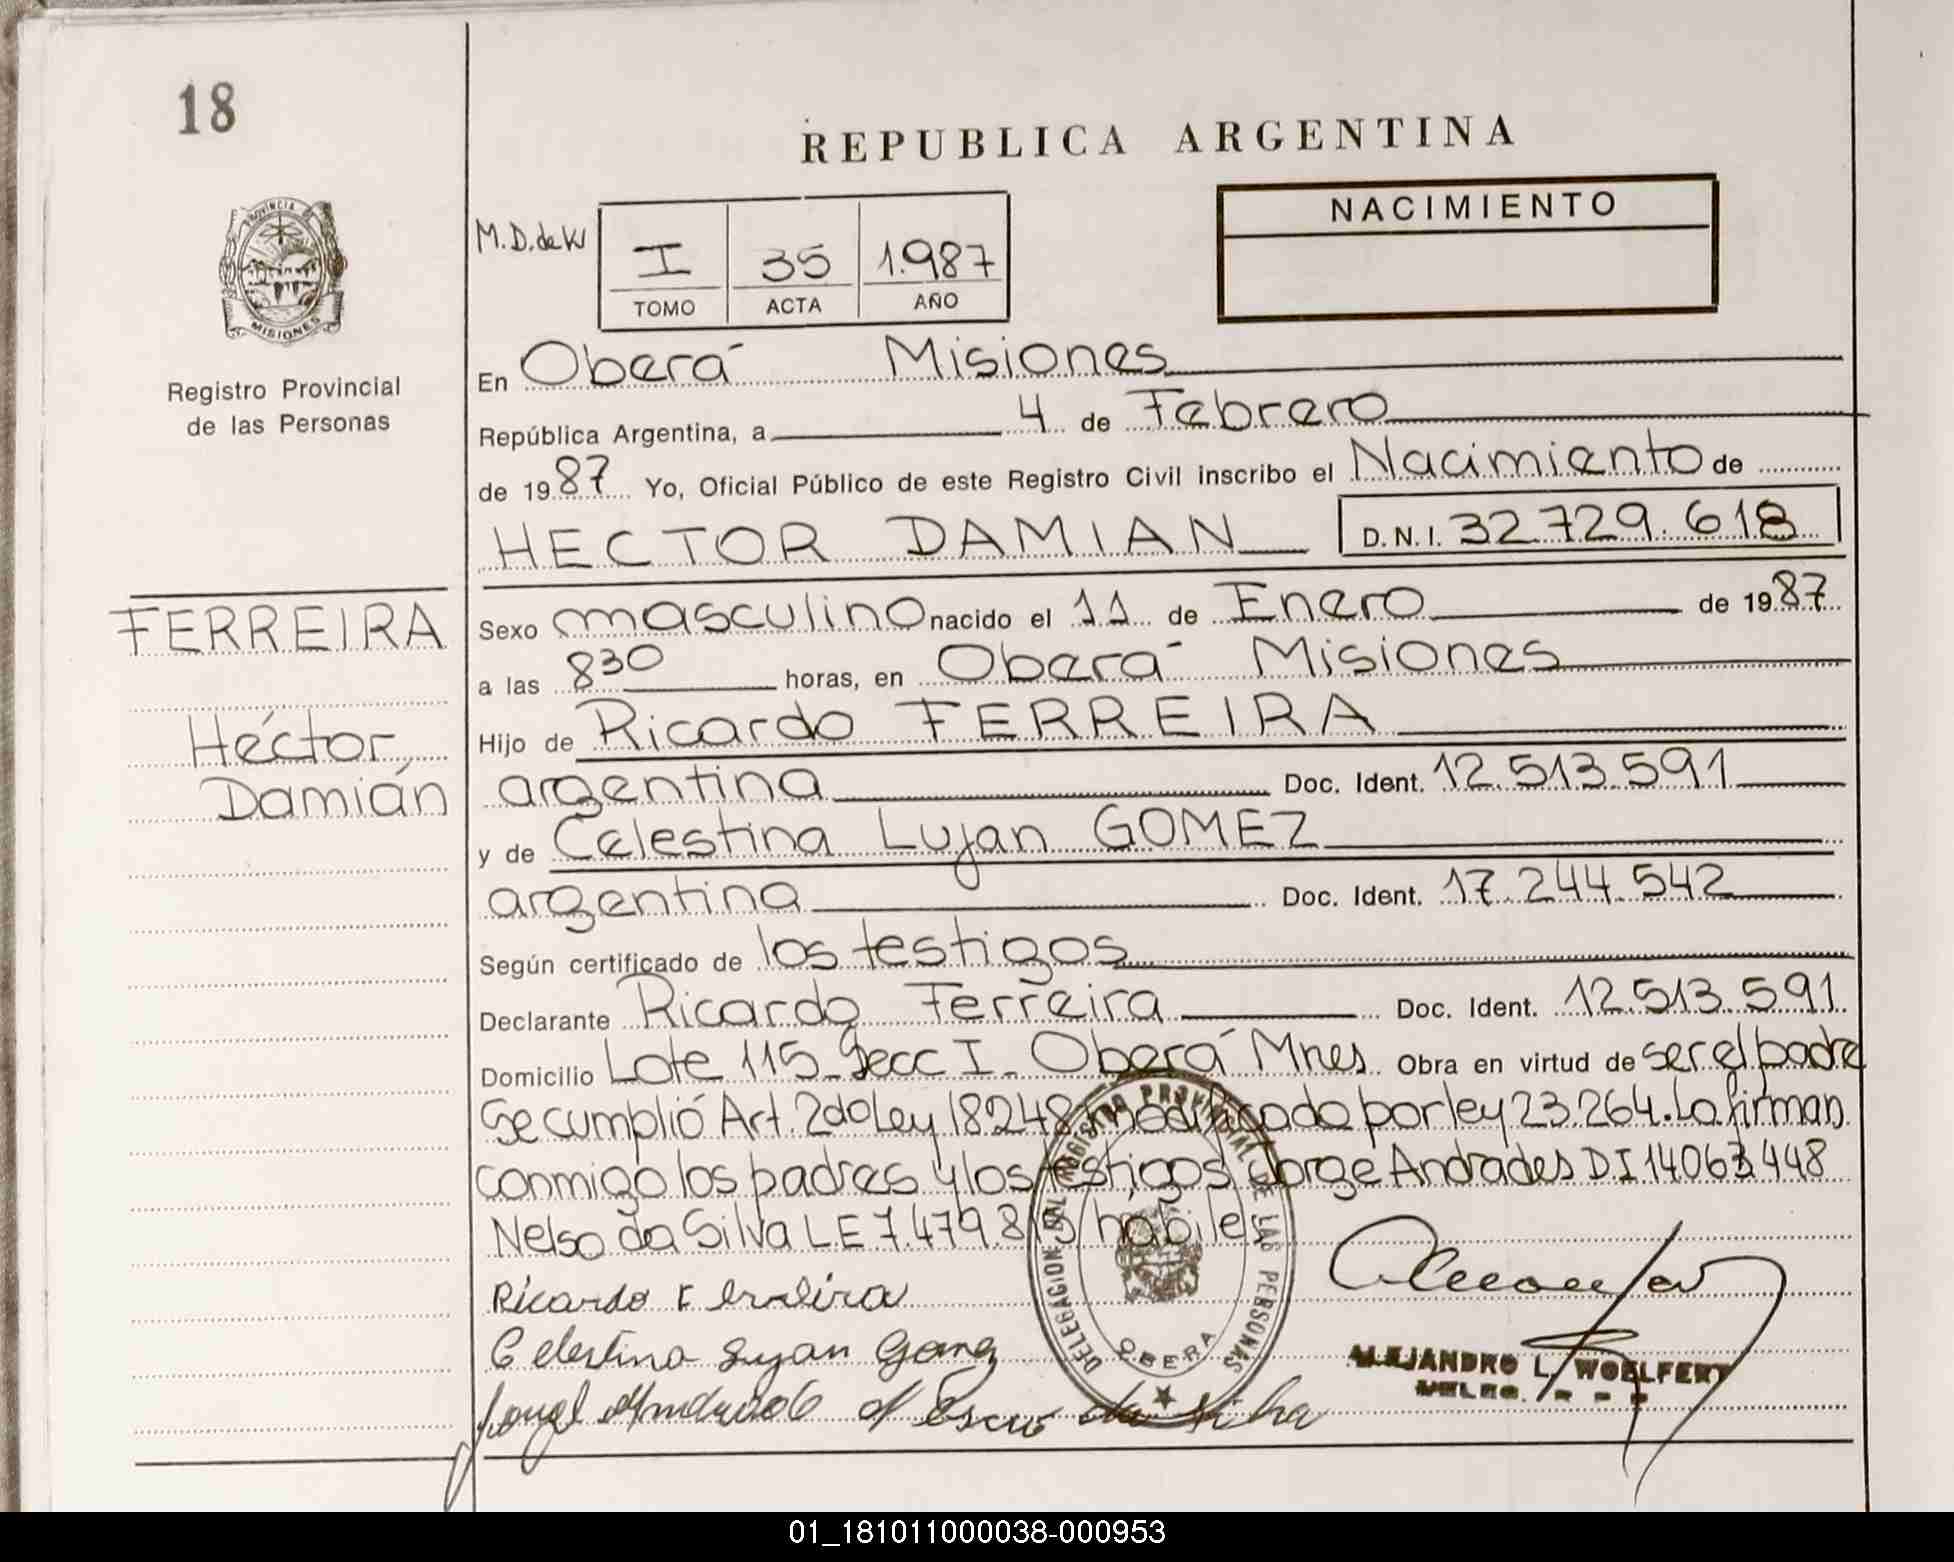 18
REPUBLICA ARGENTINA
PROVINCIA DE
MISIONES
Registro Provincial
de las Personas
M.D.de K
I 35 1.987
TOMO ACTA AÑO
NACIMIENTO
En Oberá Misiones
República Argentina, a 4 de Febrero
de 1987 Yo, Oficial Público de este Registro Civil inscribo el Nacimiento de
HECTOR DAMIAN D.N.I. 32.729.618
FERREIRA
Héctor
Damián
Sexo masculino nacido el 11 de Enero de 1987
a las 830 horas, en Oberá Misiones
Hijo de Ricardo FERREIRA
argentina Doc. Ident. 12.513.591
y de Celestina Lujan GOMEZ
argentina Doc. Ident. 17.244.542
Según certificado de los testigos
Declarante Ricardo Ferreira Doc. Ident. 12.513.591
Domicilio Lote 115_Secc I_ Oberá Mnes Obra en virtud de ser el padre
Se cumplió Art. 2do Ley 18248 modificado por ley 23.264. La firman
conmigo los padres y los testigos Jorge Andrades D.I 14063448
Nelso da Silva LE 7.479.815 habiles
DELEGACION DEL REGISTRO PROVINCIAL DE LAS PERSONAS
OBERA
Ricardo Ferreira
Celestina Lujan Gomez
da Silva
ALEJANDRO L. WOELFERT
01_181011000038-000953